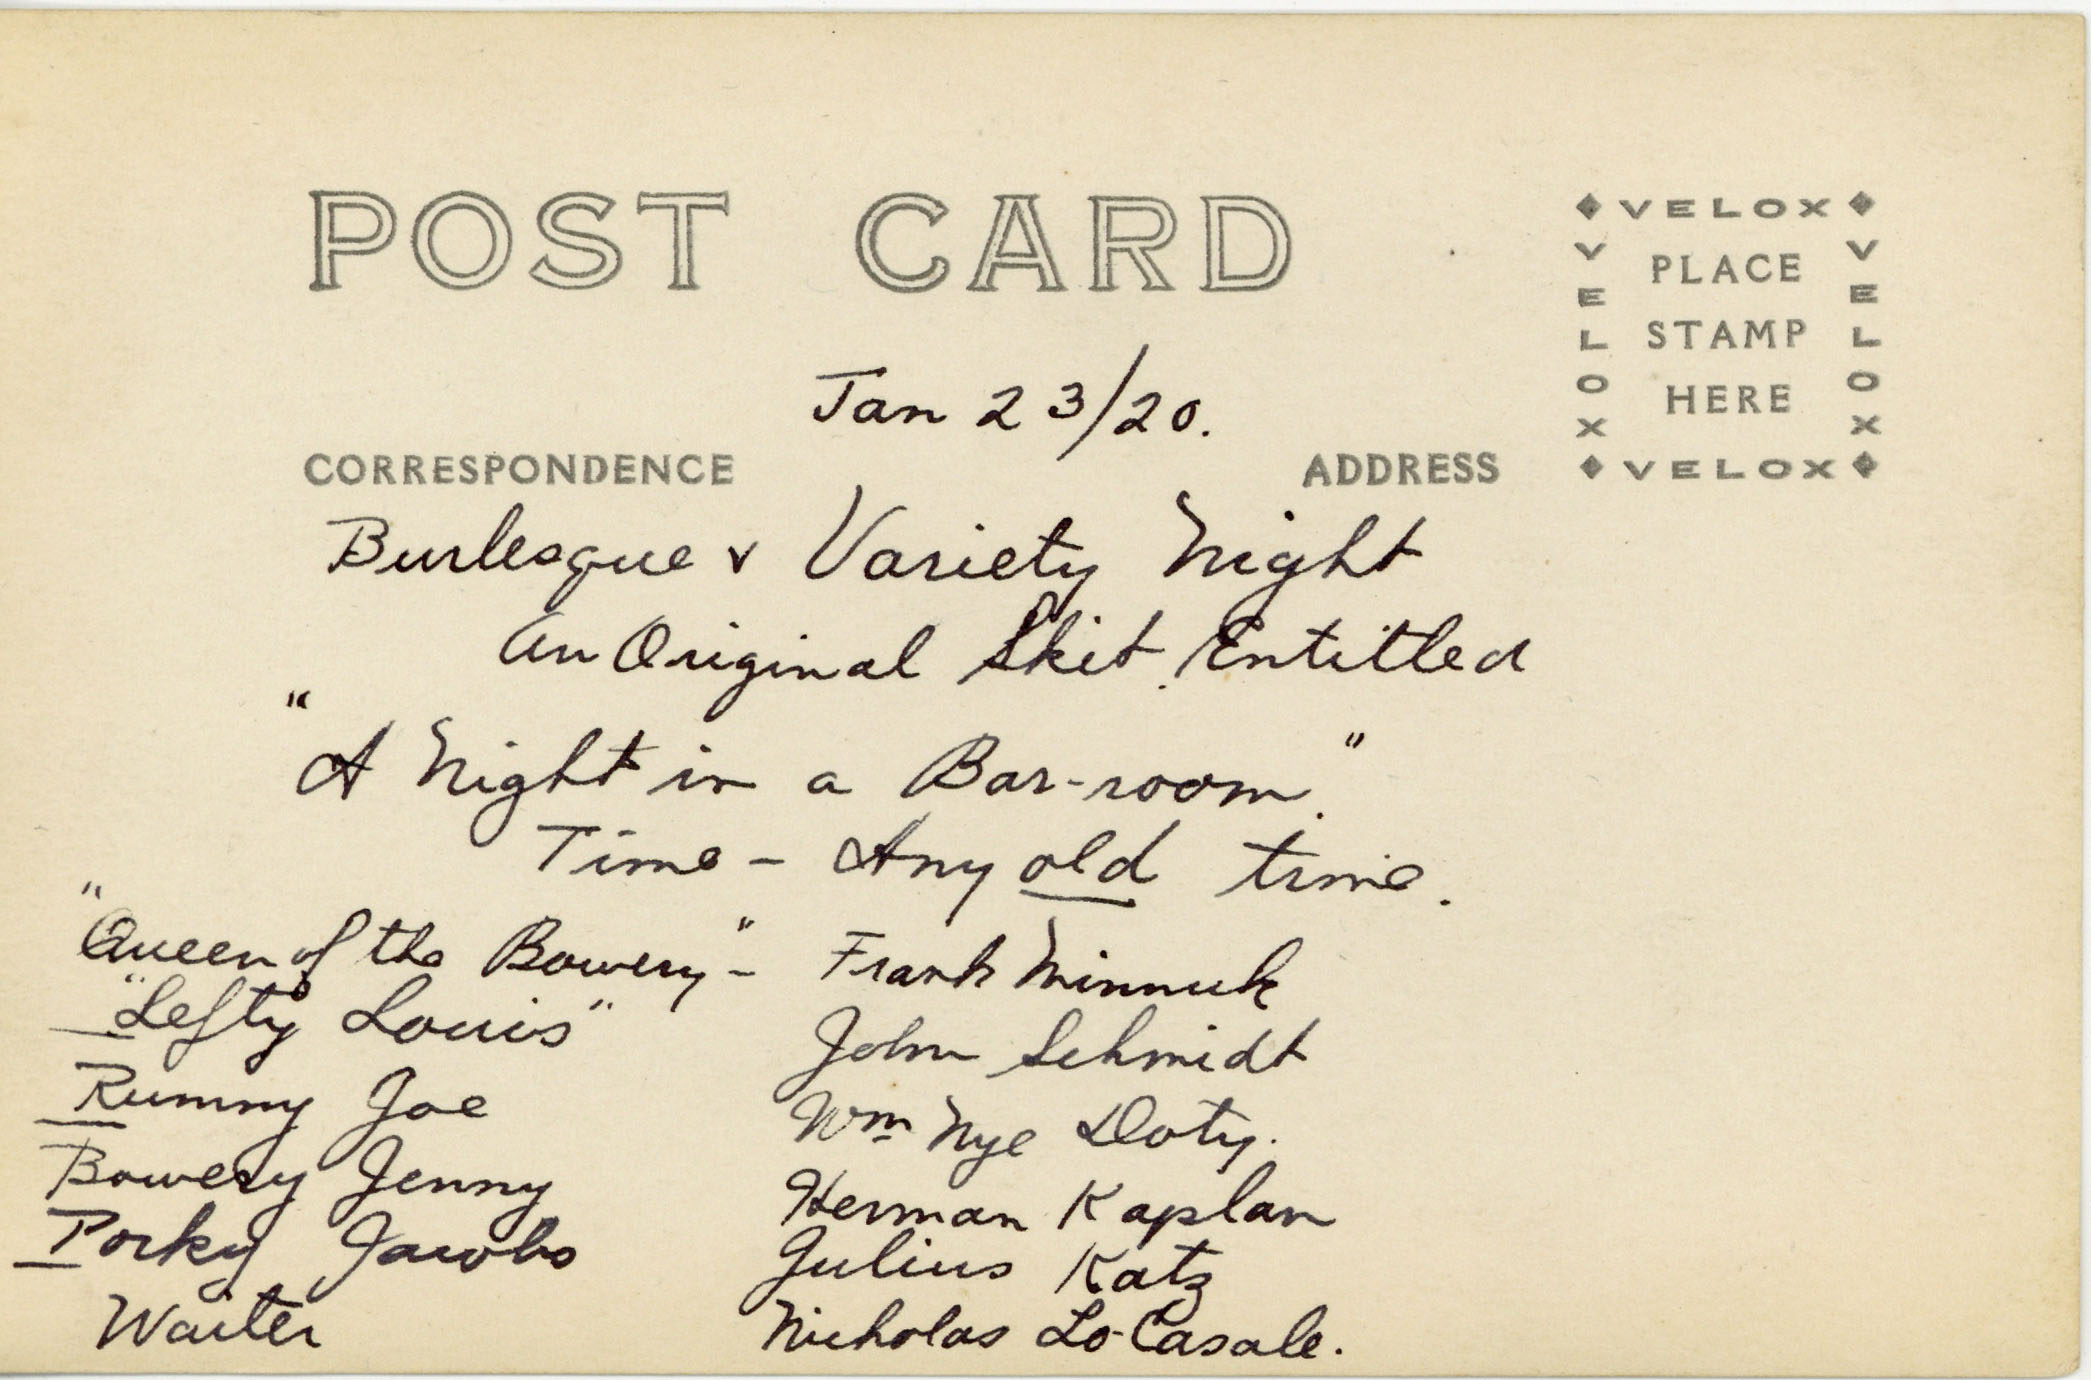 POST CARD
VELOX
VELOX
PLACE
STAMP
HERE
VELOX
VELOX
Jan 23/20.
CORRESPONDENCE
ADDRESS
Burlesque & Variety Night
An Original Skit Entitled
"A Night in a Bar-room."
Time - Any old time.
"Queen of the Bowery" - Frank
"Lefty Louis" John Schmidt
Rummy Joe Wm Nye Doty.
Bowery Jenny Herman Kaplan
Porky Jacobs Julius Katz
Waiter Nicholas Lo-Casale.